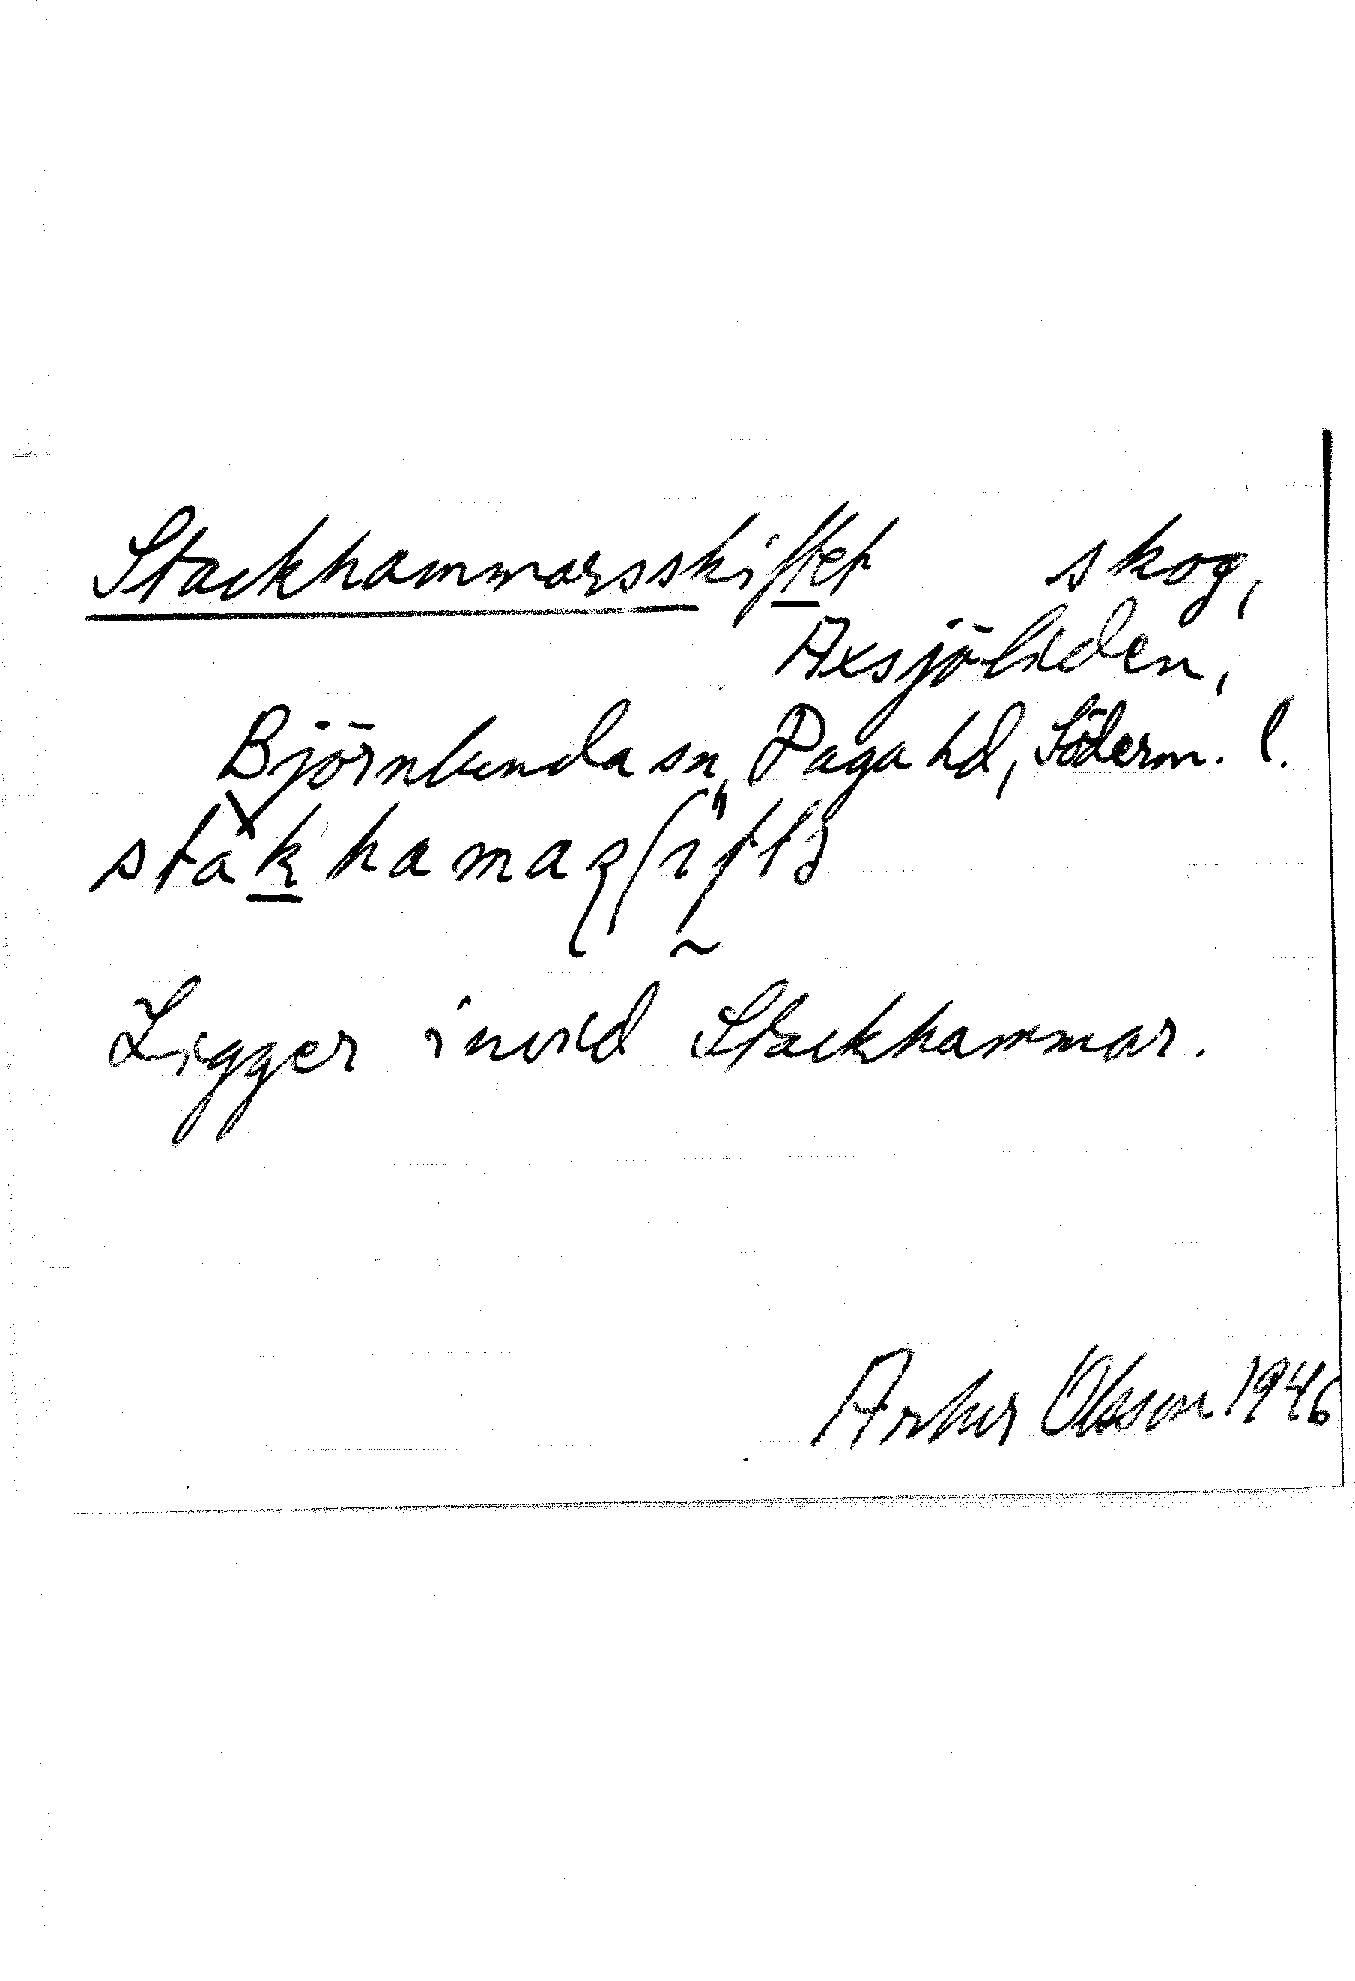 Stackhammarsskiftet skog,
Axsjöliden,
Björnlunda sn, Daga hd, Söderm. l.
Ligger invid Stackhammar.
Arthur Olsson 1946